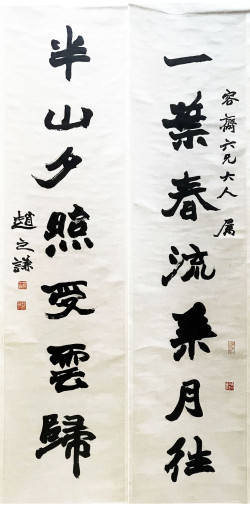 容齋六兄大人屬
一葉春流乘月往
半山夕照受雲歸
趙之謙